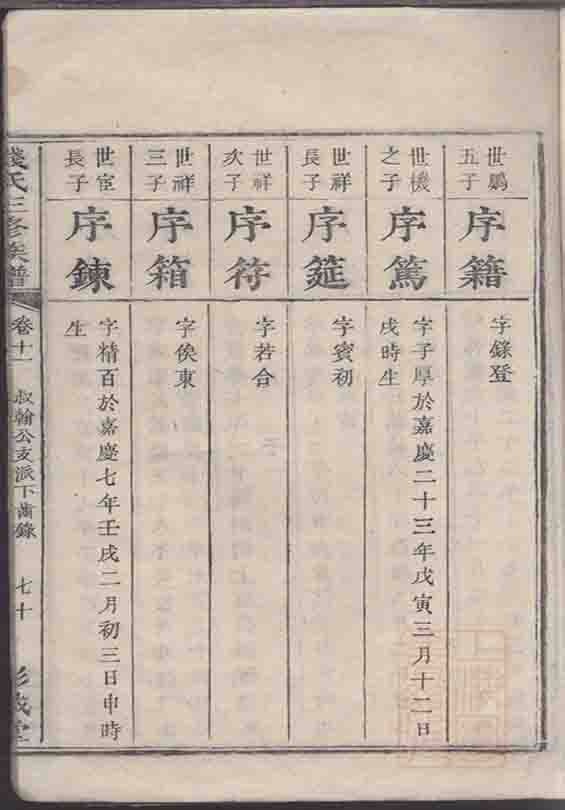 世鵬
五子
序籍
字錄登
世機
之子
序篤
字子厚於嘉慶二十三年戊寅三月十二日
戌時生
世祥
長子
序筵
字賓初
世祥
次子
序符
字若合
世祥
三子
序箱
字侯東
世宦
長子
序鍊
字精百於嘉慶七年壬戌二月初三日申時
生
錢氏三修族譜
卷十一
叔翰公支派下齒錄
七十
彭城堂